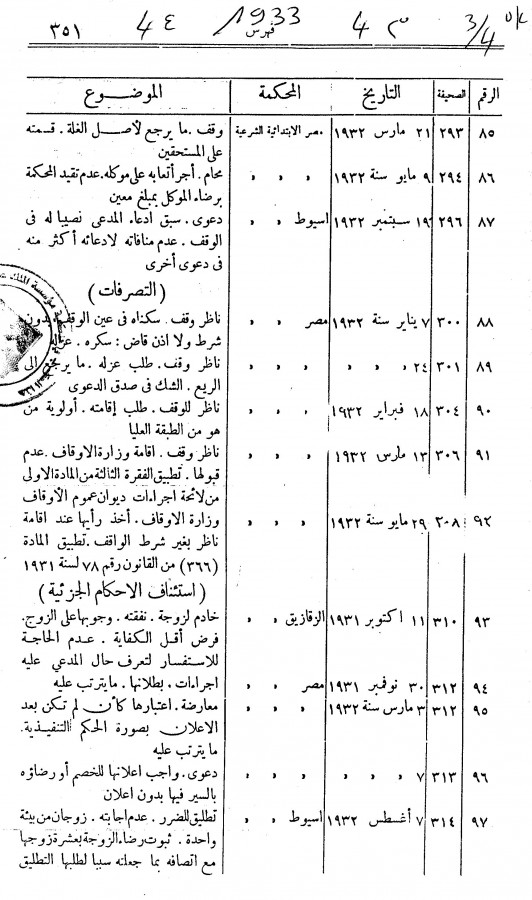 ٣٥١ ٤٤ فهرس 1933 ٤ م ٣/٤
الرقم الصحيفة التاريخ المحكمة الموضوع
٨٥ ٢٩٣ ٢١ مارس ١٩٣٢ مصر الابتدائية الشرعية وقف. ما يرجع لأصل الغلة. قسمته
على المستحقين
٨٦ ٢٩٤ ٩ مايو سنة ١٩٣٢ » » محام. أجر أتعابه على موكله. عدم تقيد المحكمة
برضاء الموكل بمبلغ معين
٨٧ ٢٩٦ ١٩ سبتمبر ١٩٣٢ اسيوط » » دعوى. سبق ادعاء المدعى نصيبا له فى
الوقف. عدم منافاته لادعائه أكثر منه
فى دعوى أخرى
(التصرفات)
٨٨ ٣٠٠ ٧ يناير سنة ١٩٣٢ مصر » » ناظر وقف. سكناه فى عين الوقف بدون
شرط ولا اذن قاض: سكره. عزله
٨٩ ٣٠١ ٢٤ » » » » » ناظر وقف. طلب عزله. ما يرجع الى
الريع. الشك فى صدق الدعوى
٩٠ ٣٠٤ ١٨ فبراير ١٩٣٢ » » ناظر للوقف. طلب إقامته. أولوية من
هو من الطبقة العليا
٩١ ٣٠٦ ١٣ مارس ١٩٣٢ » » ناظر وقف. اقامة وزارة الاوقاف. عدم
قبولها. تطبيق الفقرة الثالثة من المادة الاولى
من لائحة اجراءات ديوان عموم الأوقاف
٩٢ ٣٠٨ ٢٩ مايو سنة ١٩٣٢ » » وزارة الاوقاف. أخذ رأيها عند اقامة
ناظر بغير شرط الواقف. تطبيق المادة
(٣٦٦) من القانون رقم ٧٨ لسنة ١٩٣١
(استئناف الاحكام الجزئية)
٩٣ ٣١٠ ١١ اكتوبر ١٩٣١ الزقازيق » » خادم لزوجة. نفقته. وجوبها على الزوج.
فرض أقل الكفاية. عدم الحاجة
للاستفسار لتعرف حال المدعي عليه
٩٤ ٣١٢ ٣٠ نوفمبر ١٩٣١ مصر » » اجراءات. بطلانها. ما يترتب عليه
٩٥ ٣١٢ ٣ مارس سنة ١٩٣٢ » » معارضة. اعتبارها كأن لم تكن بعد
الاعلان بصورة الحكم التنفيذية.
ما يترتب عليه
٩٦ ٣١٣ ٧ » » » » » دعوى. واجب اعلانها للخصم أو رضاؤه
بالسير فيها بدون اعلان
٩٧ ٣١٤ ٧ أغسطس ١٩٣٢ اسيوط » » تطليق للضرر. عدم اجابته. زوجان من بيئة
واحدة. ثبوت رضاء الزوجة بعشرة زوجها
مع اتصافه بما جعلته سببا لطلبها التطليق